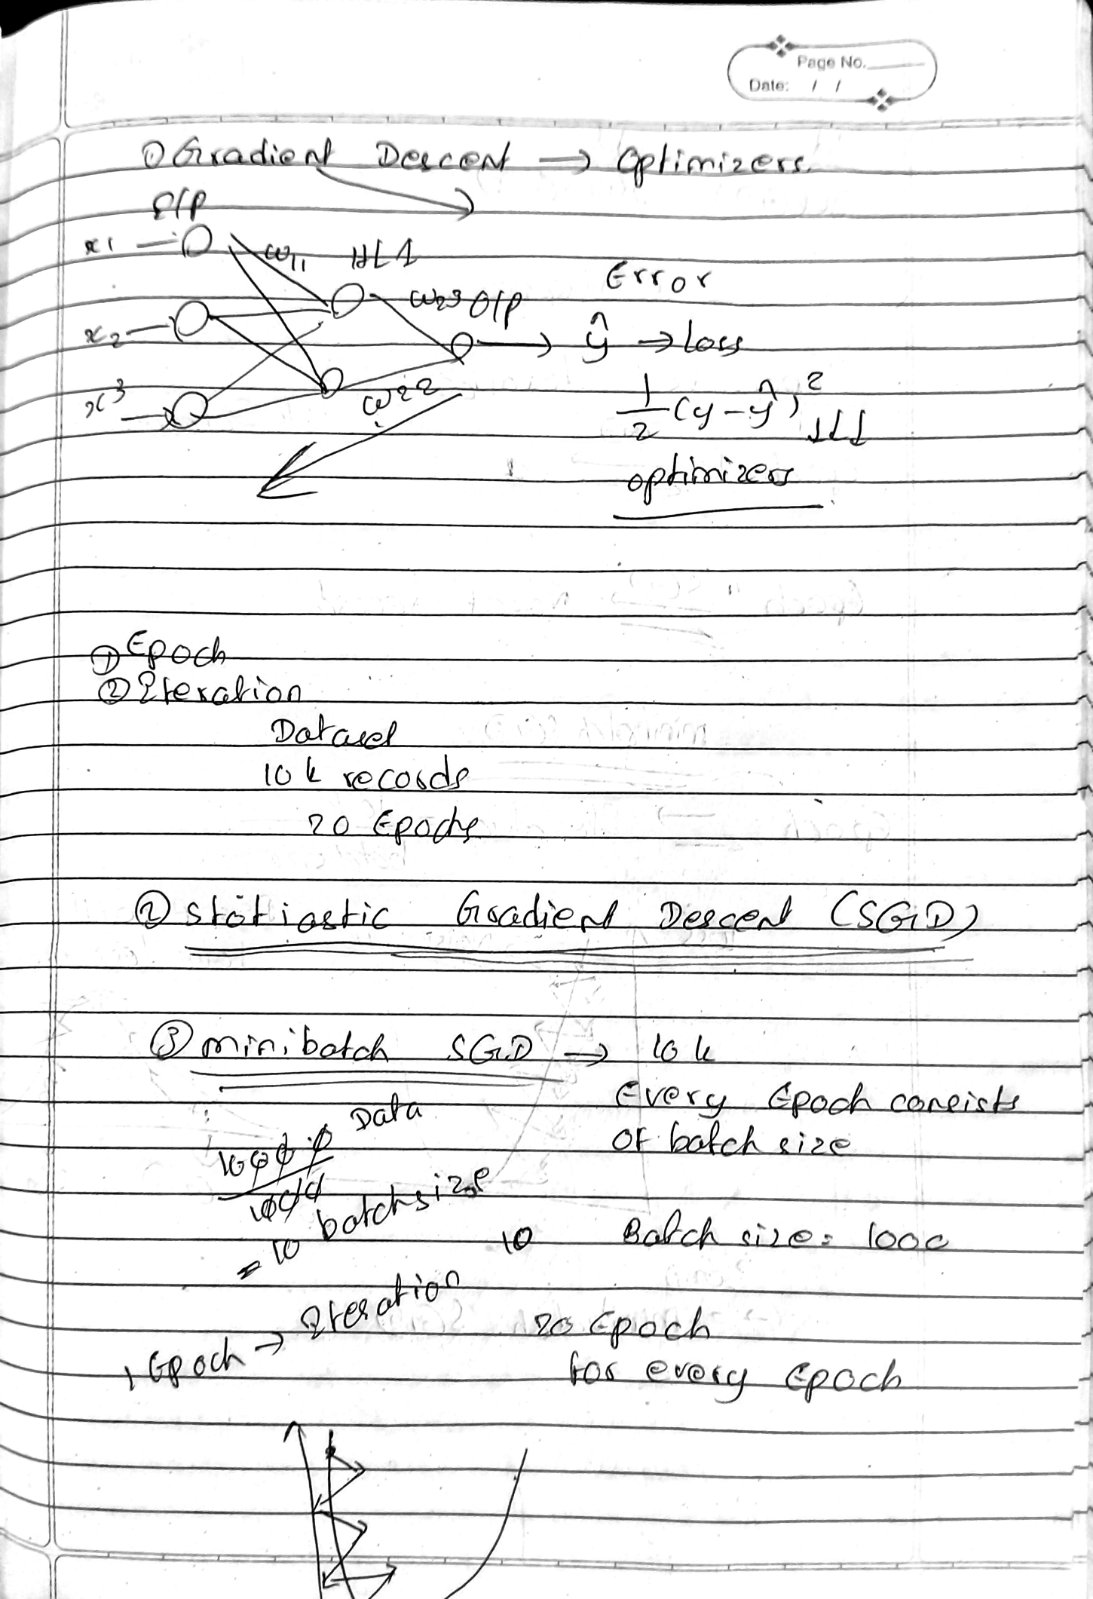 Page No.
Date: / /
① Gradient Descent → Optimizers.
I/P
x1 w11 HL1
Error
w23 O/P
x2 ŷ → Loss
x3 w22
1/2 (y - ŷ)² ↓↓↓
optimizers
① Epoch
② Iteration
Dataset
10 k records
20 Epochs
② stotiastic Gradient Descent (SGD)
③ minibatch SGD → 10 k
Data Every Epoch consists
of batch size
10000
1000
batch size
= 10
10 Batch size = 1000
1 Epoch → Iteration
20 Epoch
for every Epoch